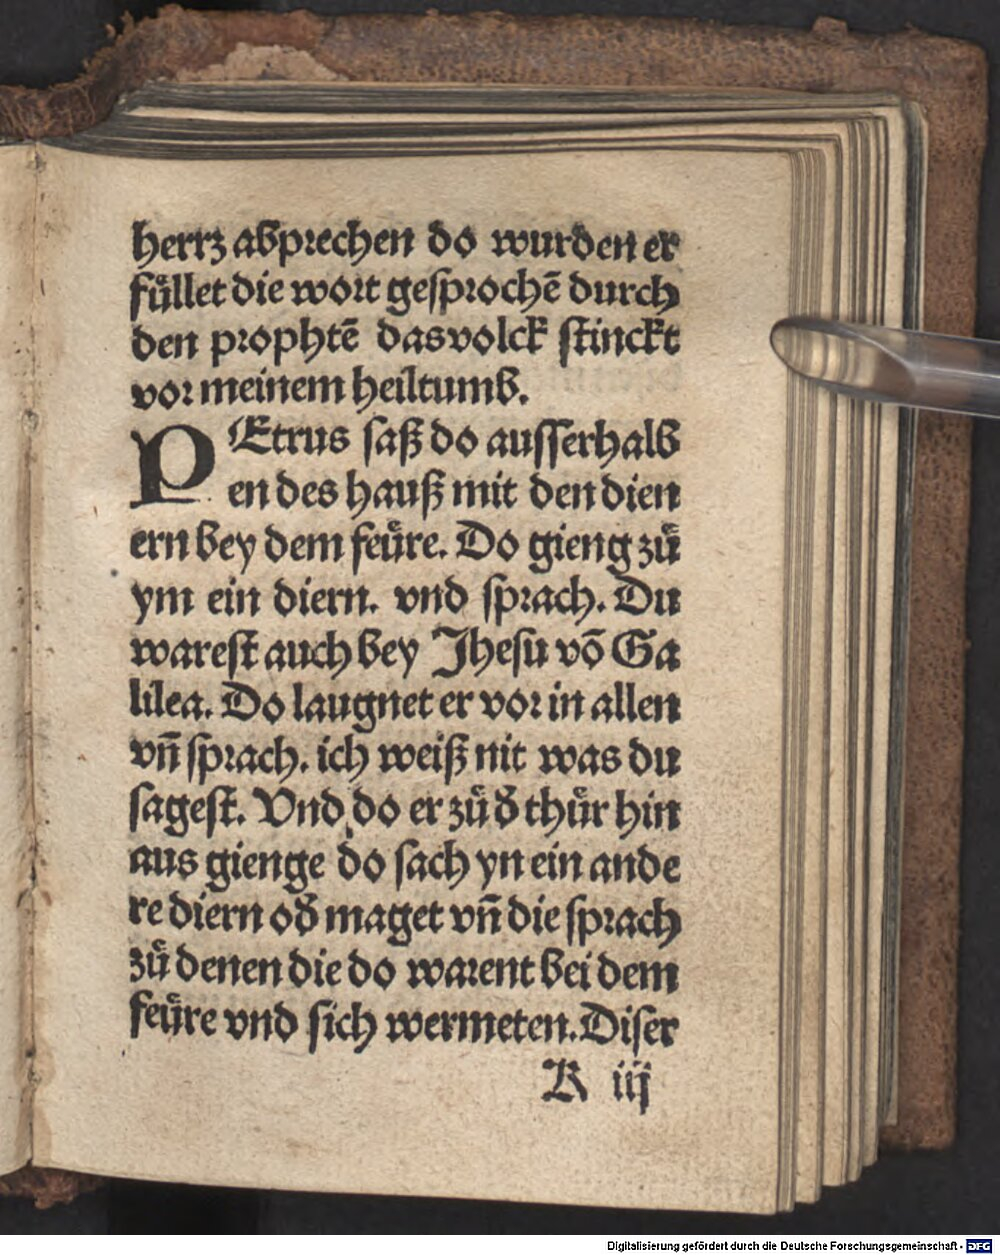 herrz abprechen do wurden er
fuͤllet die wort gesprochē durch
den prophtē das volck stinckt
vor meinem heiltumb.
PEtrus saß do ausserhalb
en des hauß mit den dien
ern bey dem feuͤre. Do gieng zuͤ
ym ein diern. vnd sprach. Du
warest auch bey Jhesu vō Ga
lilea. Do laugnet er vor in allen
vn̄ sprach. ich weiß nit was du
sagest. Vnd do er zuͤ d̕ thuͤr hin
aus gienge do sach yn ein ande
re diern od̕ maget vn̄ die sprach
zuͤ denen die do warent bei dem
feuͤre vnd sich wermeten. Diser
K iij
Digitalisierung gefördert durch die Deutsche Forschungsgemeinschaft - DFG